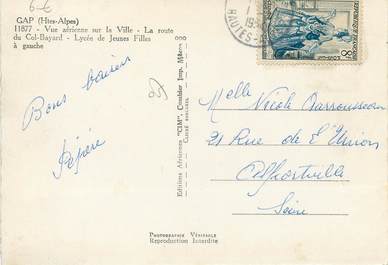 6-€
GAP (Htes-Alpes)
11877 - Vue aérienne sur la Ville - La route
du Col-Bayard - Lycée de Jeunes Filles
à gauche
Bons baisers
Pépère
Editions Aériennes "CIM", Combier Imp. Mâcon
HAUTES-
8F
Melle Nicole
21 Rue de l'Union
Alfortville
Seine
Photographie Véritable
Reproduction Interdite